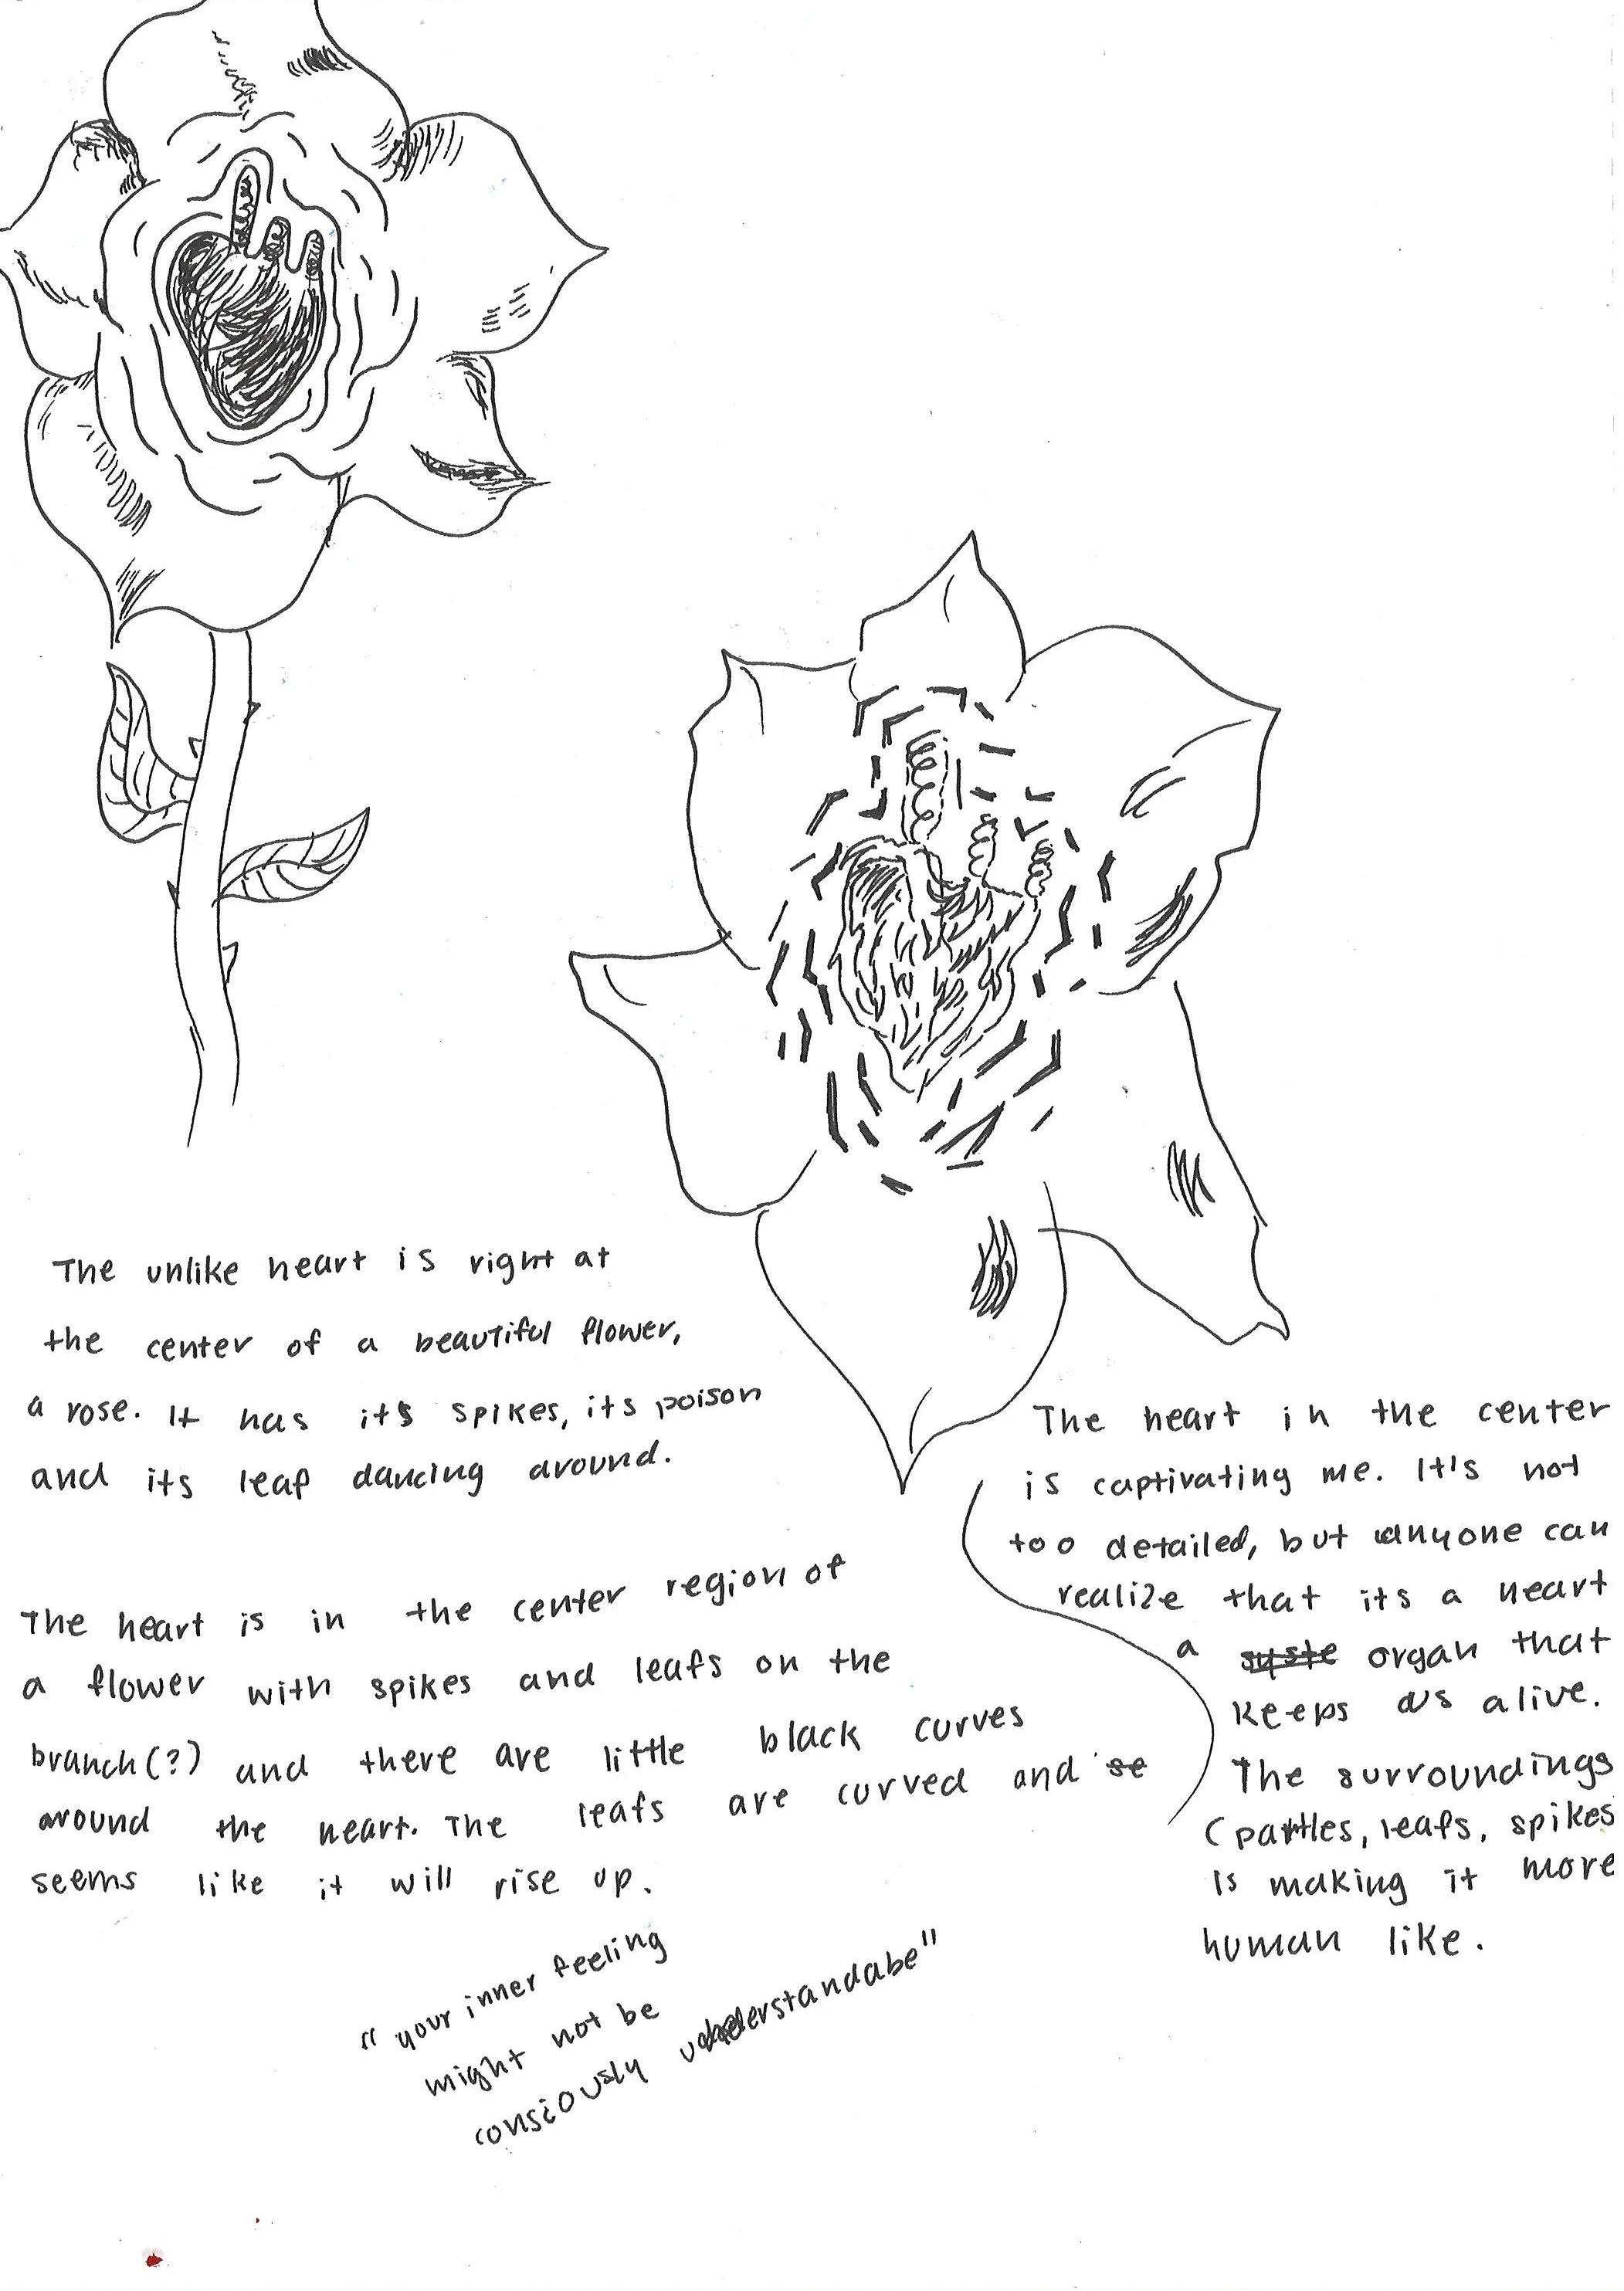 The unlike heart is right at
the center of a beautiful flower,
a rose. It has its spikes, its poison
and its leaf dancing around.
The heart is in the center region of
a flower with spikes and leafs on the
branch(?) and there are little black curves
around the heart. The leafs are curved and se
seems like it will rise up.
"your inner feeling
might not be
consiously understandabe"
The heart in the center
is captivating me. It's not
too detailed, but anyone can
realize that its a heart
a syste organ that
keeps us alive.
The surroundings
(pattles, leafs, spikes
is making it more
human like.